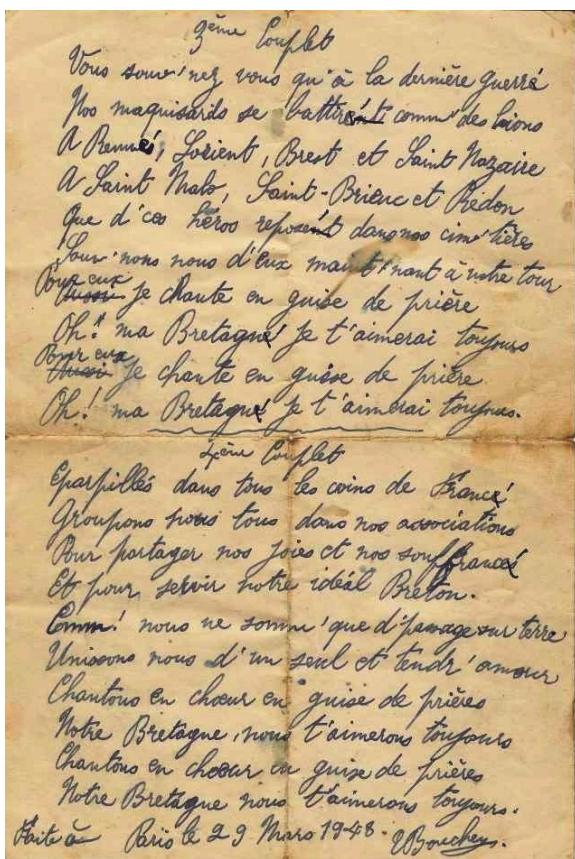 3ème Couplet
Vous souv'nez vous qu'à la dernière guerré
Nos maquisards se battirént comm' des lions
A Rennes, Lorient, Brest et Saint Nazaire
A Saint Malo, Saint-Brieuc et Redon
Que d'ces héros reposént dans nos cim'tières
Souv'nons nous d'eux maint'nant à notre tour
Pour eux
Aussi je chante en guise de prière
Oh! ma Bretagne' je t'aimerai toujours
Pour eux
Aussi je chante en guise de prière
Oh! ma Bretagne' je t'aimerai toujours.
4ème Couplet
Eparpillés dans tous les coins de France'
Groupons nous tous dans nos associations
Pour partager nos joies et nos souffrances
Et pour servir notre idéal Breton.
Comm' nous ne somm'que d'passage sur terre
Unissons nous d'un seul et tendr'amour
Chantons en chœur en guise de prières
Notre Bretagne, nous t'aimerons toujours
Chantons en chœur en guise de prières
Notre Bretagne nous t'aimerons toujours.
Faite à Paris le 29 Mars 1948.